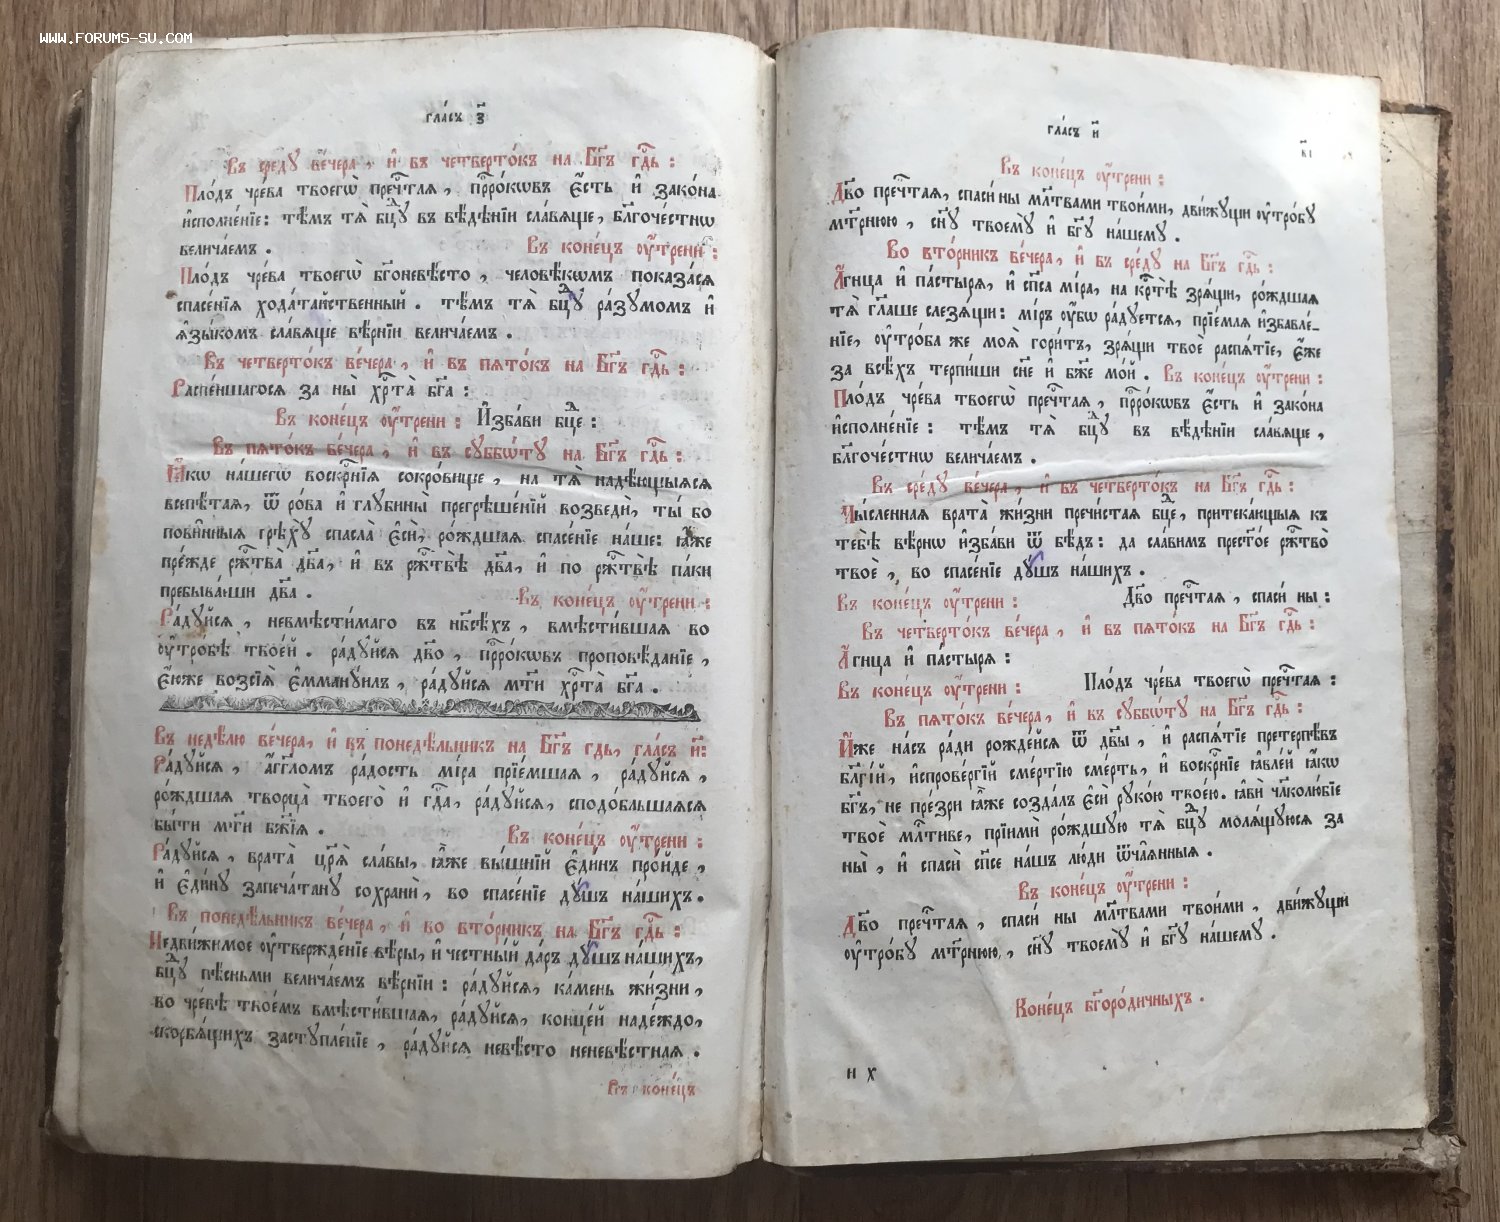 www.forums-su.com
гла́съ з҃
Въ сре́ду ве́чера, и҆ въ четверто́къ на Бг҃ъ гд҇ь :
Пло́дъ чре́ва твоегѡ̀ пречⷭ҇тая, прⷪ҇ро́кѡвъ є҆́сть и҆ зако́на
и҆сполне́нїе: тѣ́мъ тѧ̀ бцⷣу въ вѣ́дѣнїи сла́вѧще, бл҃гоче́стнѡ
велича́емъ . Въ коне́цъ оу҆́трени :
Пло́дъ чре́ва твоегѡ̀ бг҃оневѣ́сто, человѣ́кѡмъ показа́сѧ
спасе́нїѧ хода́тайственный . тѣ́мъ тѧ̀ бцⷣу ра́зумомъ и҆
ѧ҆зы́комъ сла́вѧще вѣ́рнїи велича́емъ .
Въ четверто́къ ве́чера, и҆ въ пѧто́къ на Бг҃ъ гд҇ь :
Распе́ншагосѧ за ны̀ хрⷭ҇та̀ бг҃а :
Въ коне́цъ оу҆́трени : И҆зба́ви бцⷣе :
Въ пѧто́къ ве́чера, и҆ въ суббѡ́ту на Бг҃ъ гд҇ь :
Ꙗ҆́кѡ на́шегѡ воскрⷭ҇нїѧ сокро́вище, на тѧ̀ надѣ́ющыѧсѧ
всепѣ́таѧ, ѿ ро́ва и҆ глубины̀ прегрѣше́нїй возведѝ, ты́ бо
пови́нныѧ грѣхꙋ̀ спасла̀ є҆сѝ, ро́ждшаѧ спасе́нїе на́ше: ꙗ҆́же
пре́жде ржⷭ҇тва̀ дв҃а, и҆ въ ржⷭ҇твѣ̀ дв҃а, и҆ по ржⷭ҇твѣ̀ па́ки
пребыва́ѧши дв҃а . Въ коне́цъ оу҆́трени :
Ра́дуйсѧ, невмѣсти́маго въ нб҃сѣ́хъ, вмѣсти́вшаѧ во
оу҆тро́бѣ твое́й . ра́дуйсѧ дв҃о, прⷪ҇ро́кѡвъ проповѣ́данїе,
є҆́юже возсїѧ̀ є҆мману́илъ, ра́дуйсѧ мт҃и хрⷭ҇та̀ бг҃а .
Въ недѣ́лю ве́чера, и҆ въ понедѣ́льникъ на Бг҃ъ гдь, гла́съ и҃:
Ра́дуйсѧ, а҆́гг҃ломъ ра́дость мі́ра прїе́мшаѧ, ра́дуйсѧ,
ро́ждшаѧ творца̀ твоего̀ и҆ гдⷭ҇а, ра́дуйсѧ, сподо́бльшаѧсѧ
бы́ти мт҃и бж҃їѧ . Въ коне́цъ оу҆́трени :
Ра́дуйсѧ, врата̀ цр҃ѧ̀ сла́вы, ꙗ҆́же вы́шнїй є҆ди́нъ про́йде,
и҆ є҆ди́ну запеча́тану сохранѝ, во спасе́нїе ду́шъ на́шихъ.
Въ понедѣ́льникъ ве́чера, и҆ во вто́рникъ на Бг҃ъ гд҇ь :
Недви́жимое оу҆твержде́нїе вѣ́ры, и҆ че́стный да́ръ ду́шъ на́шихъ,
бцⷣу пѣ́сньми велича́емъ вѣ́рнїи : ра́дуйсѧ, ка́мень жи́зни,
во чре́вѣ твое́мъ вмѣсти́вшаѧ, ра́дуйсѧ, конце́й наде́ждо,
скорбѧ́щихъ заступле́нїе, ра́дуйсѧ невѣ́сто неневѣ́стнаѧ .
Въ коне́цъ
гла́съ и҃
в҃і
Въ коне́цъ оу҆́трени :
Дв҃о пречⷭ҇таѧ, спаси́ ны мл҃твами твои́ми, дви́жущи оу҆тро́бу
мт҃рнюю, сн҃у твоему̀ и҆ бг҃у на́шему .
Во вто́рникъ ве́чера, и҆ въ сре́ду на Бг҃ъ гд҇ь :
А҆́гница и҆ па́стырѧ, и҆ сп҃са мі́ра, на крⷭ҇тѣ̀ зрѧ́щи, ро́ждшаѧ
тѧ̀ гл҃аше слезѧ́щи: мі́ръ оу҆́бѡ ра́дуетсѧ, прїе́млѧ и҆збавле́-
нїе, оу҆тро́ба же моѧ̀ гори́тъ, зрѧ́щи твоѐ распѧ́тїе, є҆́же
за всѣ́хъ терпи́ши сн҃е и҆ бж҃е мо́й . Въ коне́цъ оу҆́трени :
Пло́дъ чре́ва твоегѡ̀ пречⷭ҇таѧ, прⷪ҇ро́кѡвъ є҆́сть и҆ зако́на
и҆сполне́нїе : тѣ́мъ тѧ̀ бцⷣу въ вѣ́дѣнїи сла́вѧще,
бл҃гоче́стнѡ велича́емъ .
Въ сре́ду ве́чера, и҆ въ четверто́къ на Бг҃ъ гд҇ь :
Мы́сленнаѧ врата̀ жи́зни пречи́стаѧ бцⷣе, притека́ющыѧ къ
тебѣ̀ вѣ́рнѡ и҆зба́ви ѿ бѣ́дъ : да сла́вимъ прест҃о́е ржⷭ҇тво̀
твоѐ, во спасе́нїе ду́шъ на́шихъ .
Въ коне́цъ оу҆́трени : Дв҃о пречⷭ҇таѧ, спаси́ ны :
Въ четверто́къ ве́чера, и҆ въ пѧто́къ на Бг҃ъ гд҇ь :
А҆́гница и҆ па́стырѧ :
Въ коне́цъ оу҆́трени : Пло́дъ чре́ва твоегѡ̀ пречⷭ҇таѧ :
Въ пѧто́къ ве́чера, и҆ въ суббѡ́ту на Бг҃ъ гд҇ь :
И҆́же на́съ ра́ди рожде́йсѧ ѿ дв҃ы, и҆ распѧ́тїе претерпѣ́въ
бл҃гі́й, и҆спрове́ргїй сме́ртїю сме́рть, и҆ воскрⷭ҇нїе ꙗ҆вле́й ꙗ҆́кѡ
бг҃ъ, не пре́зри ꙗ҆́же созда́лъ є҆сѝ руко́ю твое́ю. ꙗ҆вѝ чл҃колю́бїе
твоѐ мл҃тиве, прїимѝ ро́ждшую тѧ̀ бцⷣу молѧ́щуюсѧ за
ны̀, и҆ спасѝ сп҃се на́шъ лю́ди ѿча́ѧнныѧ .
Въ коне́цъ оу҆́трени :
Дв҃о пречⷭ҇таѧ, спаси́ ны мл҃твами твои́ми, дви́жущи
оу҆тро́бу мт҃рнюю, сн҃у твоему̀ и҆ бг҃у на́шему .
Коне́цъ бг҃оро́дичныхъ .
и х